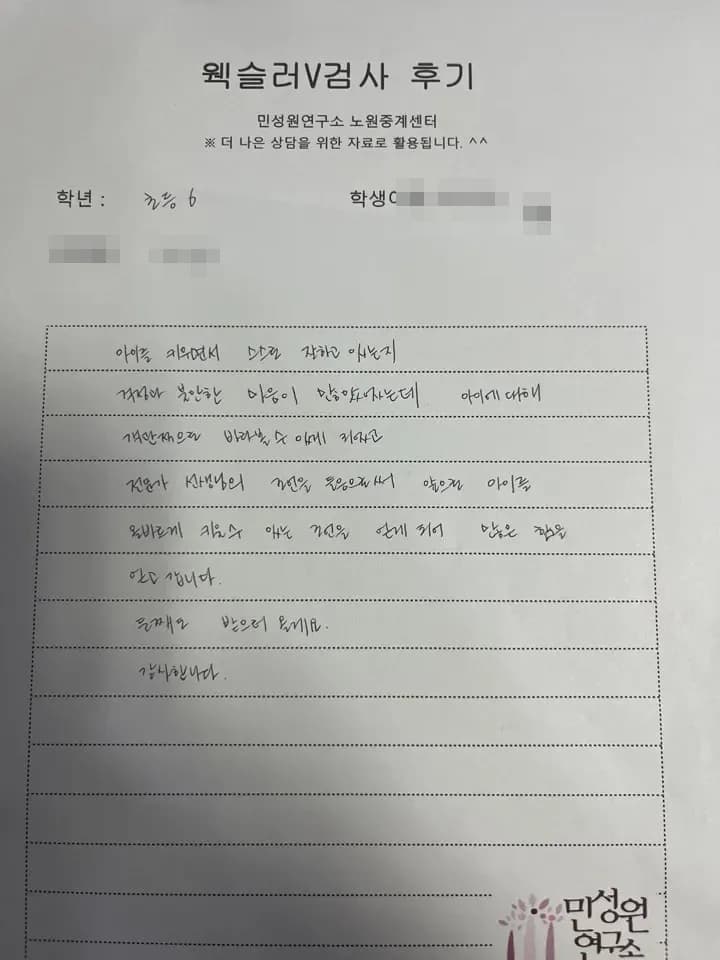 웩슬러V검사 후기
민성원연구소 노원중계센터
※ 더 나은 상담을 위한 자료로 활용됩니다. ^^
학년 : 초등 6
학생
아이를 키우면서 스스로 잘하고 있는지
걱정과 불안한 마음이 많았었는데 아이에 대해
객관적으로 바라볼 수 있게 되었고
전문가 선생님의 조언을 들음으로써 앞으로 아이를
올바르게 키울수 있는 조언을 얻게 되어 많은 힘을
얻고 갑니다.
둘째도 받으러 올게요.
감사합니다.
민성원
연구소